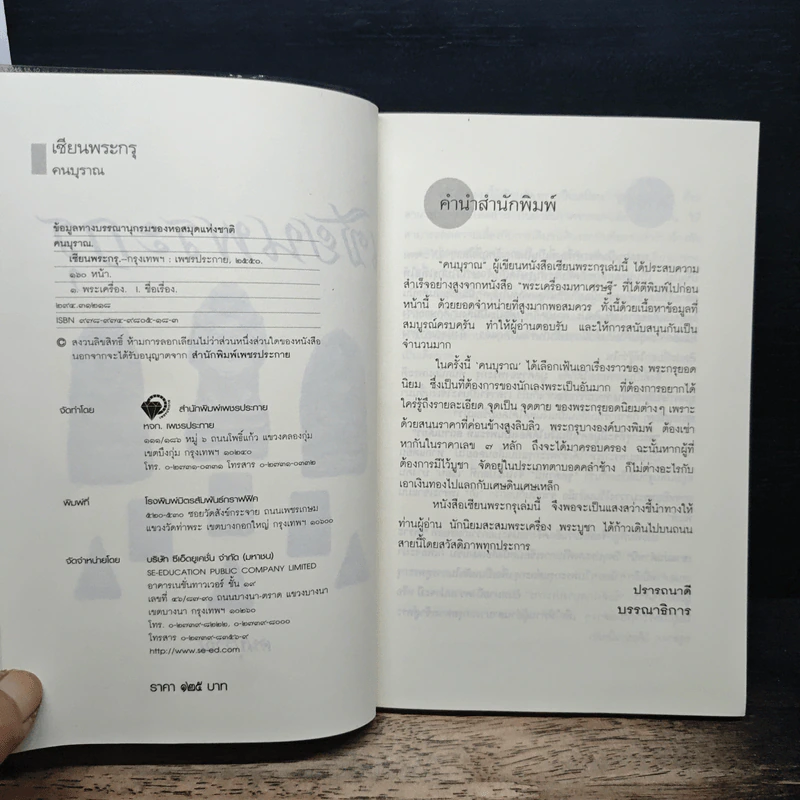 เซียนพระกรุ
คนบุราณ
ข้อมูลทางบรรณานุกรมของหอสมุดแห่งชาติ
คนบุราณ.
เซียนพระกรุ.--กรุงเทพฯ : เพชรประกาย, ๒๕๕๐.
๑๖๐ หน้า.
๑. พระเครื่อง. I. ชื่อเรื่อง.
๒๙๔.๓๑๒๑๘
ISBN ๙๗๘-๙๗๔-๙๘๐๕-๑๘-๓
© สงวนลิขสิทธิ์ ห้ามการลอกเลียนไม่ว่าส่วนหนึ่งส่วนใดของหนังสือ
นอกจากจะได้รับอนุญาตจาก สำนักพิมพ์เพชรประกาย
จัดทำโดย สำนักพิมพ์เพชรประกาย
หจก. เพชรประกาย
๑๑๑/๑๘๖ หมู่ ๖ ถนนโพธิ์แก้ว แขวงคลองกุ่ม
เขตบึงกุ่ม กรุงเทพฯ ๑๐๒๔๐
โทร. ๐-๒๗๓๑-๐๓๓๑ โทรสาร ๐-๒๗๓๑-๐๓๓๒
พิมพ์ที่ โรงพิมพ์มิตรสัมพันธ์กราฟฟิค
๕๒๐-๕๓๐ ซอยวัดสังข์กระจาย ถนนเพชรเกษม
แขวงวัดท่าพระ เขตบางกอกใหญ่ กรุงเทพฯ ๑๐๖๐๐
จัดจำหน่ายโดย บริษัท ซีเอ็ดยูเคชั่น จำกัด (มหาชน)
SE-EDUCATION PUBLIC COMPANY LIMITED
อาคารเนชั่นทาวเวอร์ ชั้น ๑๙
เลขที่ ๔๖/๘๗-๙๐ ถนนบางนา-ตราด แขวงบางนา
เขตบางนา กรุงเทพฯ ๑๐๒๖๐
โทร. ๐-๒๗๓๙-๘๒๒๒, ๐-๒๗๓๙-๘๐๐๐
โทรสาร ๐-๒๗๓๙-๘๓๕๖-๙
http://www.se-ed.com
ราคา ๑๒๕ บาท
คำนำสำนักพิมพ์
"คนบุราณ" ผู้เขียนหนังสือเซียนพระกรุเล่มนี้ ได้ประสบความ
สำเร็จอย่างสูงจากหนังสือ "พระเครื่องมหาเศรษฐี" ที่ได้ตีพิมพ์ไปก่อน
หน้านี้ ด้วยยอดจำหน่ายที่สูงมากพอสมควร ทั้งนี้ด้วยเนื้อหาข้อมูลที่
สมบูรณ์ครบครัน ทำให้ผู้อ่านตอบรับ และให้การสนับสนุนกันเป็น
จำนวนมาก
ในครั้งนี้ 'คนบุราณ' ได้เลือกเฟ้นเอาเรื่องราวของ พระกรุยอด
นิยม ซึ่งเป็นที่ต้องการของนักเลงพระเป็นอันมาก ที่ต้องการอยากได้
ใคร่รู้ถึงรายละเอียด จุดเป็น จุดตาย ของพระกรุยอดนิยมต่างๆ เพราะ
ด้วยสนนราคาที่ค่อนข้างสูงลิบลิ่ว พระกรุบางองค์บางพิมพ์ ต้องเช่า
หากันในราคาเลข ๗ หลัก ถึงจะได้มาครอบครอง ฉะนั้นหากผู้ที่
ต้องการมีไว้บูชา จัดอยู่ในประเภทตาบอดคลำช้าง ก็ไม่ต่างอะไรกับ
เอาเงินทองไปแลกกับเศษดินเศษเหล็ก
หนังสือเซียนพระกรุเล่มนี้ จึงพอจะเป็นแสงสว่างชี้นำทางให้
ท่านผู้อ่าน นักนิยมสะสมพระเครื่อง พระบูชา ได้ก้าวเดินไปบนถนน
สายนี้โดยสวัสดิภาพทุกประการ
ปรารถนาดี
บรรณาธิการ